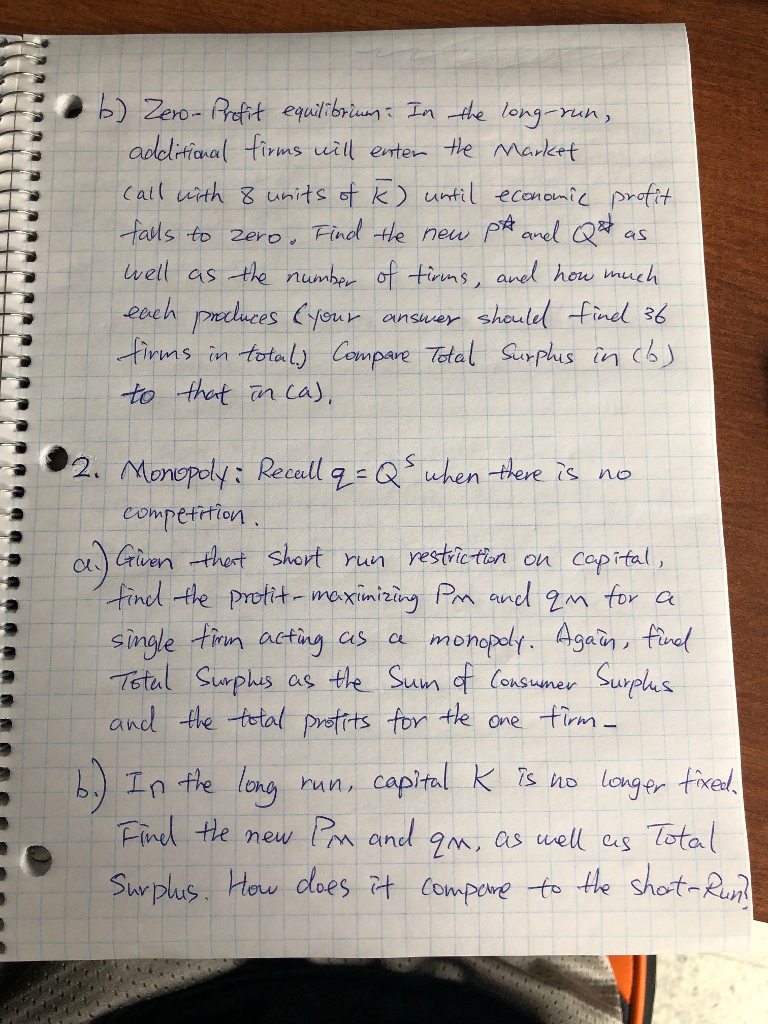 b) Zero-Profit equilibrium: In the long-run,
additional firms will enter the Market
(all with 8 units of K̅) until economic profit
falls to zero. Find the new P* and Q* as
well as the number of firms, and how much
each produces (your answer should find 36
firms in total.) Compare Total Surplus in (b)
to that in (a).
2. Monopoly: Recall q = Qˢ when there is no
competition.
a.) Given that short run restriction on capital,
find the profit-maximizing Pm and qm for a
single firm acting as a monopoly. Again, find
Total Surplus as the Sum of Consumer Surplus
and the total profits for the one firm-
b.) In the long run, capital K is no longer fixed.
Find the new Pm and qm, as well as Total
Surplus. How does it compare to the short-Run?